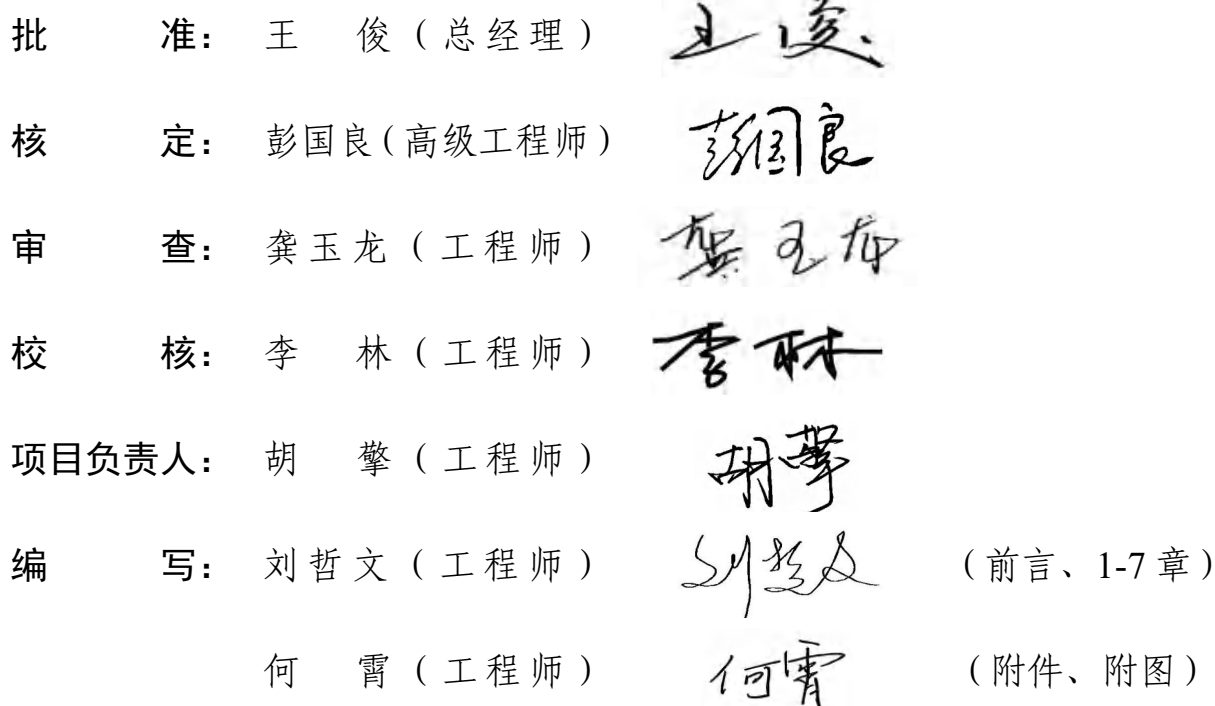 批 准： 王 俊（总经理） 王俊
核 定： 彭国良（高级工程师） 彭国良
审 查： 龚玉龙（工程师） 龚玉龙
校 核： 李 林（工程师） 李林
项目负责人： 胡 擎（工程师） 胡擎
编 写： 刘哲文（工程师） 刘哲文 （前言、1-7 章）
何 霄（工程师） 何霄 （附件、附图）